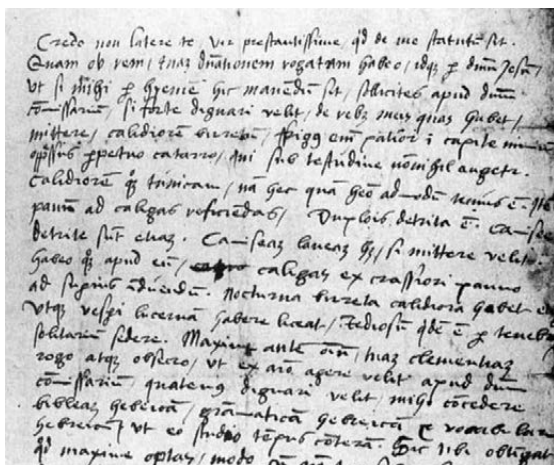 Credo non latere te, vir prestantissime, qd de me statutū sit.
Quam ob rem, tuaz dn̄ationem rogatam habeo, idqz p dnm Jesū,
ut si mihi p hyemē hic manēdū sit, sollicites apud dnm
cōmissariū, si forte dignari velit, de rebz meis quas habet,
mittere, calidiorē birretū, frigus em̄ patior ī capite nimiū
oppssus ppetuo catarro, qui sub testudine nōnihil augetr.
Calidiorē qz tunicam, nā hec quā heo admodū tenuis ē. Itē
pannū ad caligas reficiendas, Duplois detrita ē. camisee
detrite sūt etiaz. Camiseaz laneaz hz, si mittere velit.
habeo qz apud eū, caligas ex crassiori panno
ad supius īduendū. Nocturna birreta calidiora habet
utqz vespi lucernā habere liceat, Tediosū qde ē p tenebras
solitariū sedere. Maxime ante oīm, tuaz clementiaz
rogo atqz obsecro, ut ex agere velit apud dnm
cōmissariū, quatenus dignari velit, mihi cōcedere
bibleaz hebreicā, grāmaticā hebreicā,
hebreicū, ut eo studio tēpus cōterā. Sic tibi
qd maxime optas, modo